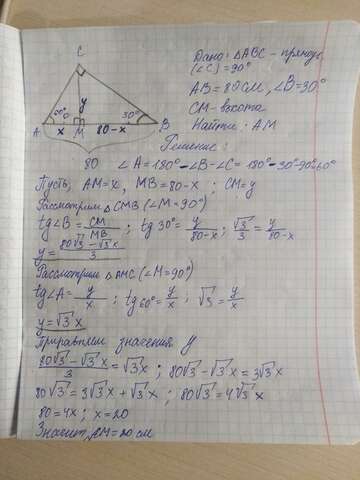 C
Дано: ΔABC - прямоуг
(∠C) = 90°
AB = 80см, ∠B = 30°
CM - высота
Найти: AM
60° y 30°
A x M 80-x B
80
Решение:
∠A = 180° - ∠B - ∠C = 180° - 30° - 90° = 60°
Пусть, AM = x, MB = 80 - x ; CM = y
Рассмотрим Δ CMB (∠M = 90°)
tg∠B = CM/MB ; tg 30° = y/80-x ; √3/3 = y/80-x
y = 80√3 - √3x/3
Рассмотрим Δ AMC (∠M = 90°)
tg∠A = y/x ; tg 60° = y/x ; √3 = y/x
y = √3 x
Приравняем значения y
80√3 - √3x/3 = √3x ; 80√3 - √3x = 3√3x
80√3 = 3√3x + √3x ; 80√3 = 4√3x
80 = 4x ; x = 20
Значит, AM = 20 см